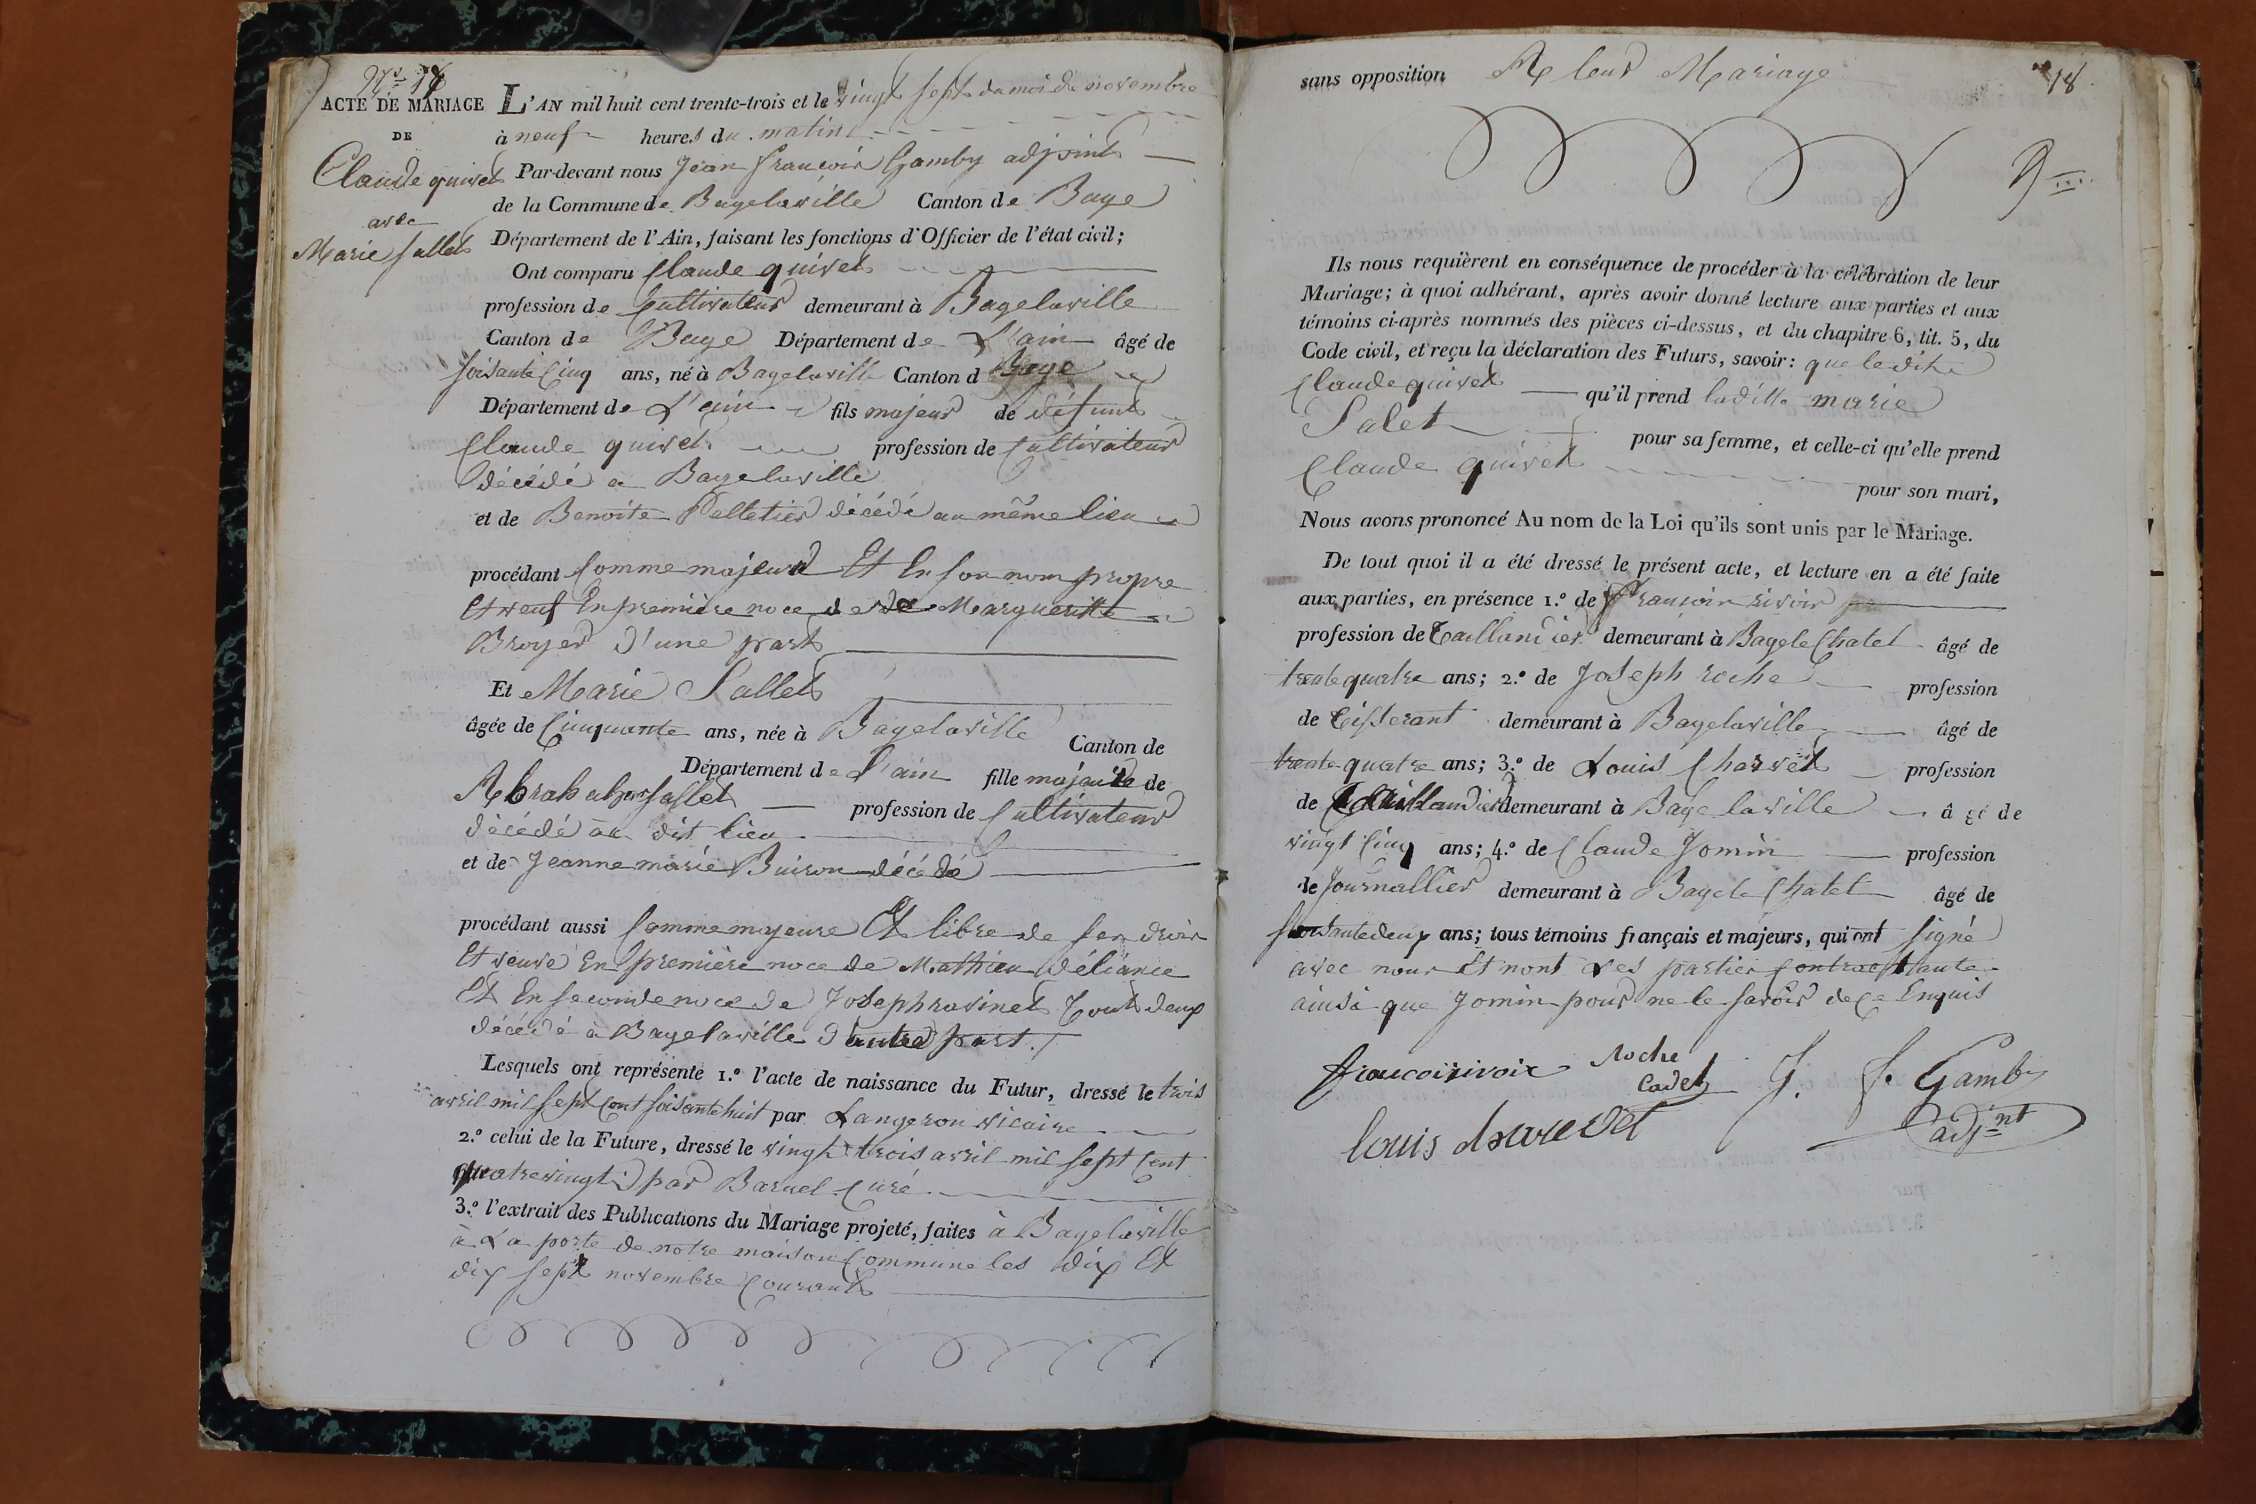 N.o 18
ACTE DE MARIAGE
DE
Claude quivet
avec
Marie sallet
L'AN mil huit cent trente-trois et le vingt sept du moi de novembre
à neuf heures du matin
Par-devant nous Jean francois Gamby adjoint
de la Commune de Bagelaville Canton de Bage
Département de l'Ain, faisant les fonctions d'Officier de l'état civil;
Ont comparu Claude quivet
profession de Cultivateur demeurant à Bagelaville
Canton de Bage Département de L'ain âgé de
soisante Cinq ans, né à Bagelaville Canton d Bage
Département de L'ain fils majeur de défunt
Claude quivet profession de Cultivateur
décédé a Bagelaville
et de Benoite Pelletier décédé au même lieu
procédant Comme majeur Et En son nom propre
Et veuf En première noce de Margueritte
Broyer D'une part
Et Marie Sallet
âgée de Cinquante ans, née à Bagelaville Canton de
Département de L'ain fille majeure de
Abraham sallet profession de Cultivateur
décédé au dit lieu
et de Jeanne marie Buiron décédé
procédant aussi Comme majeure Et libre de ses droir
Et veuve En première noce de Mathieu Déliance
Et En seconde noce de Joseph ravinet Tout deux
décédé à Bagelaville D'autre part
Lesquels ont représenté 1.º l'acte de naissance du Futur, dressé le trois
avril mil sept Cent soisante huit par Langeron vicaire
2.º celui de la Future, dressé le vingt trois avril mil sept Cent
quatrevingt par Baruel Curé
3.º l'extrait des Publications du Mariage projeté, faites à Bagelaville
à La porte de notre maison Commune les dix Et
dix sept novembre Courant
18
sans opposition A leur Mariage
Ils nous requièrent en conséquence de procéder à la célébration de leur
Mariage; à quoi adhérant, après avoir donné lecture aux parties et aux
témoins ci-après nommés des pièces ci-dessus, et du chapitre 6, tit. 5, du
Code civil, et reçu la déclaration des Futurs, savoir: que ledit
Claude quivet qu'il prend laditte marie
Salet pour sa femme, et celle-ci qu'elle prend
Claude quivet
pour son mari,
Nous avons prononcé Au nom de la Loi qu'ils sont unis par le Mariage.
De tout quoi il a été dressé le présent acte, et lecture en a été faite
aux parties, en présence 1.º de Francoir rivoir
profession de taillandier demeurant à Bage le Chatel âgé de
trente quatre ans; 2.º de Joseph roche profession
de tisserant demeurant à Bagelaville âgé de
trente quatre ans; 3.º de Louis Charvet profession
de taillandier demeurant à Bage laville âgé de
vingt Cinq ans; 4.º de Claude Jomin profession
de Journallier demeurant à Bage le Chatel âgé de
soisantedeux ans; tous témoins français et majeurs, qui ont signé
avec nour Et nont Les partier Contractante
ainsi que Jomin pour ne le savoir de Ce Enquis
francoirivoir
Roche
Cadet
J. f. Gamby
adj.nt
louis charvet